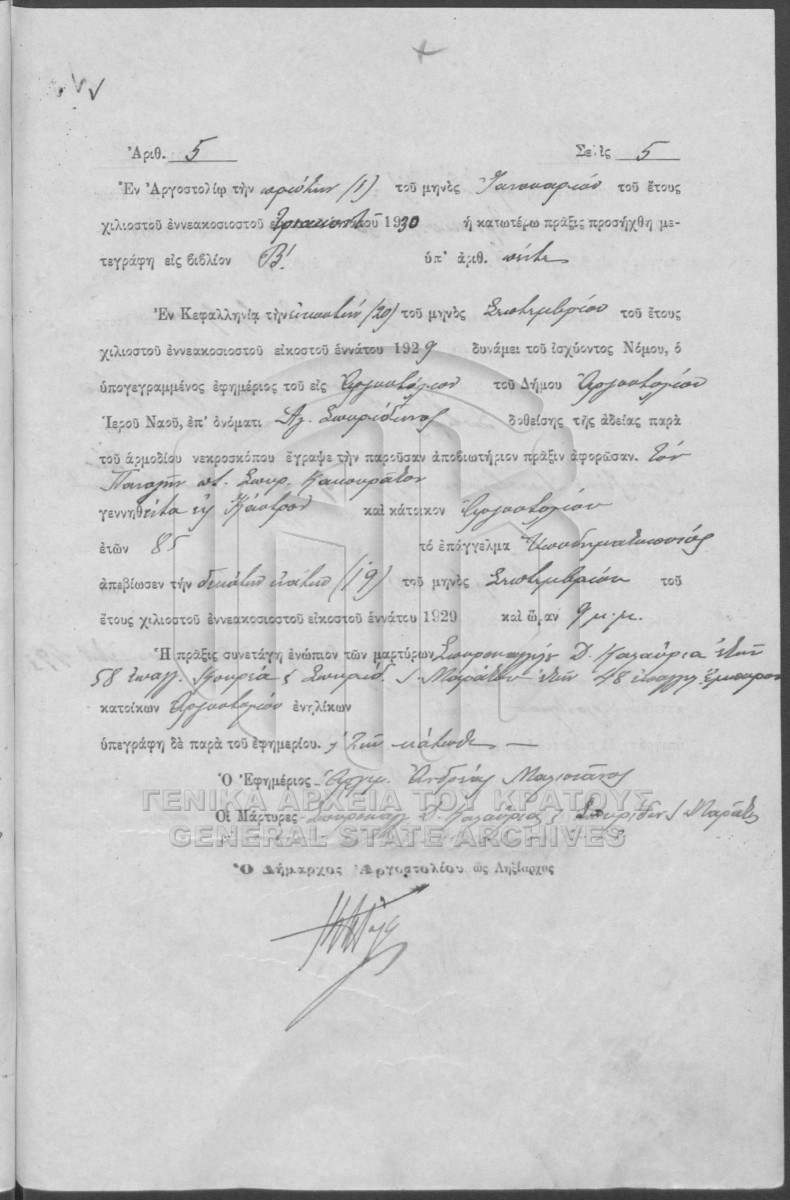 Ἀριθ. 5 Σελὶς 5
Ἐν Ἀργοστολίῳ τὴν πρώτην (1) τοῦ μηνὸς Ἰανουαρίου τοῦ ἔτους
χιλιοστοῦ ἐννεακοσιοστοῦ τριακοστοῦ 1930 ἡ κατωτέρω πρᾶξις προσήχθη με-
τεγράφη εἰς βιβλίον Β! ὑπ' ἀριθ. πέντε
Ἐν Κεφαλληνίᾳ τὴν εἰκοστήν (20) τοῦ μηνὸς Σεπτεμβρίου τοῦ ἔτους
χιλιοστοῦ ἐννεακοσιοστοῦ εἰκοστοῦ ἐννάτου 1929 δυνάμει τοῦ ἰσχύοντος Νόμου, ὁ
ὑπογεγραμμένος ἐφημέριος τοῦ εἰς Ἀργοστόλιον τοῦ Δήμου Ἀργοστολίου
Ἱεροῦ Ναοῦ, ἐπ' ὀνόματι Ἁγ. Σπυρίδωνος δοθείσης τῆς ἀδείας παρὰ
τοῦ ἁρμοδίου νεκροσκόπου ἔγραψε τὴν παροῦσαν ἀποβιωτήριον πρᾶξιν ἀφορῶσαν. τὸν
Παναγῆν π. Σπυρ. Κακουράτον
γεννηθέντα εἰς Κάστρον καὶ κάτοικον Ἀργοστολίου
ἐτῶν 85 τὸ ἐπάγγελμα Ὑποδηματοποιός
ἀπεβίωσεν τὴν δεκάτην ἐνάτην (19) τοῦ μηνὸς Σεπτεμβρίου τοῦ
ἔτους χιλιοστοῦ ἐννεακοσιοστοῦ εἰκοστοῦ ἐννάτου 1929 καὶ ὥραν 9 μ.μ.
Ἡ πρᾶξις συνετάγη ἐνώπιον τῶν μαρτύρων Δ. ἐτῶν
58 ἐπαγγ. Κουρέα & Σπυρίδ. Μαράτου ἐτῶν 48 ἐπαγγ. ἔμπορον
κατοίκων Ἀργοστολίου ἐνηλίκων
ὑπεγράφη δὲ παρὰ τοῦ ἐφημερίου. & τῶν κάτωθι —
Ὁ Ἐφημέριος Ἀνδρέας
Οἱ Μάρτυρες Δ. & Σπυρίδων Μαράτος
ΓΕΝΙΚΑ ΑΡΧΕΙΑ ΤΟΥ ΚΡΑΤΟΥΣ
GENERAL STATE ARCHIVES
Ὁ Δήμαρχος Ἀργοστολίου ὡς Ληξίαρχος